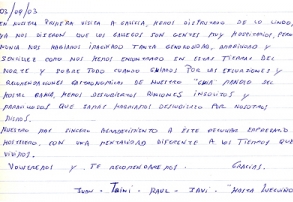 02/09/03
EN NUESTRA PRIMERA VISITA A GALICIA, HEMOS DISFRUTADO DE LO LINDO,
YA NOS DIJERON QUE LOS GALLEGOS SON GENTES MUY HOSPITALARIAS, PERO
NUNCA NOS HABIAMOS IMAGINADO TANTA GENEROSIDAD, AMABILIDAD Y
SENCILLEZ COMO NOS HEMOS ENCONTRADO EN ESTAS TIERRAS DEL
NORTE Y SOBRE TODO CUANDO POR LAS EXCURSIONES Y
RECOMENDACIONES GASTRONOMICAS DE NUESTRO "GUIA" MANOLO DEL
HOSTAL HEMOS DESCUBIERTO RINCONES INSOLITOS Y
QUE JAMAS HABRIAMOS DESCUBIERTO POR NOSOTROS
MISMOS.
NUESTRO MAS SINCERO AGRADECIMIENTO A ESTE EMPRESARIO
HOSTELERO, CON UNA MENTALIDAD DIFERENTE A LOS TIEMPOS QUE
VIVIMOS.
VOLVEREMOS Y TE RECOMENDAREMOS. GRACIAS.
JUAN - TOÑI - RAUL - JAVI - "HASTA LUEGUIÑO